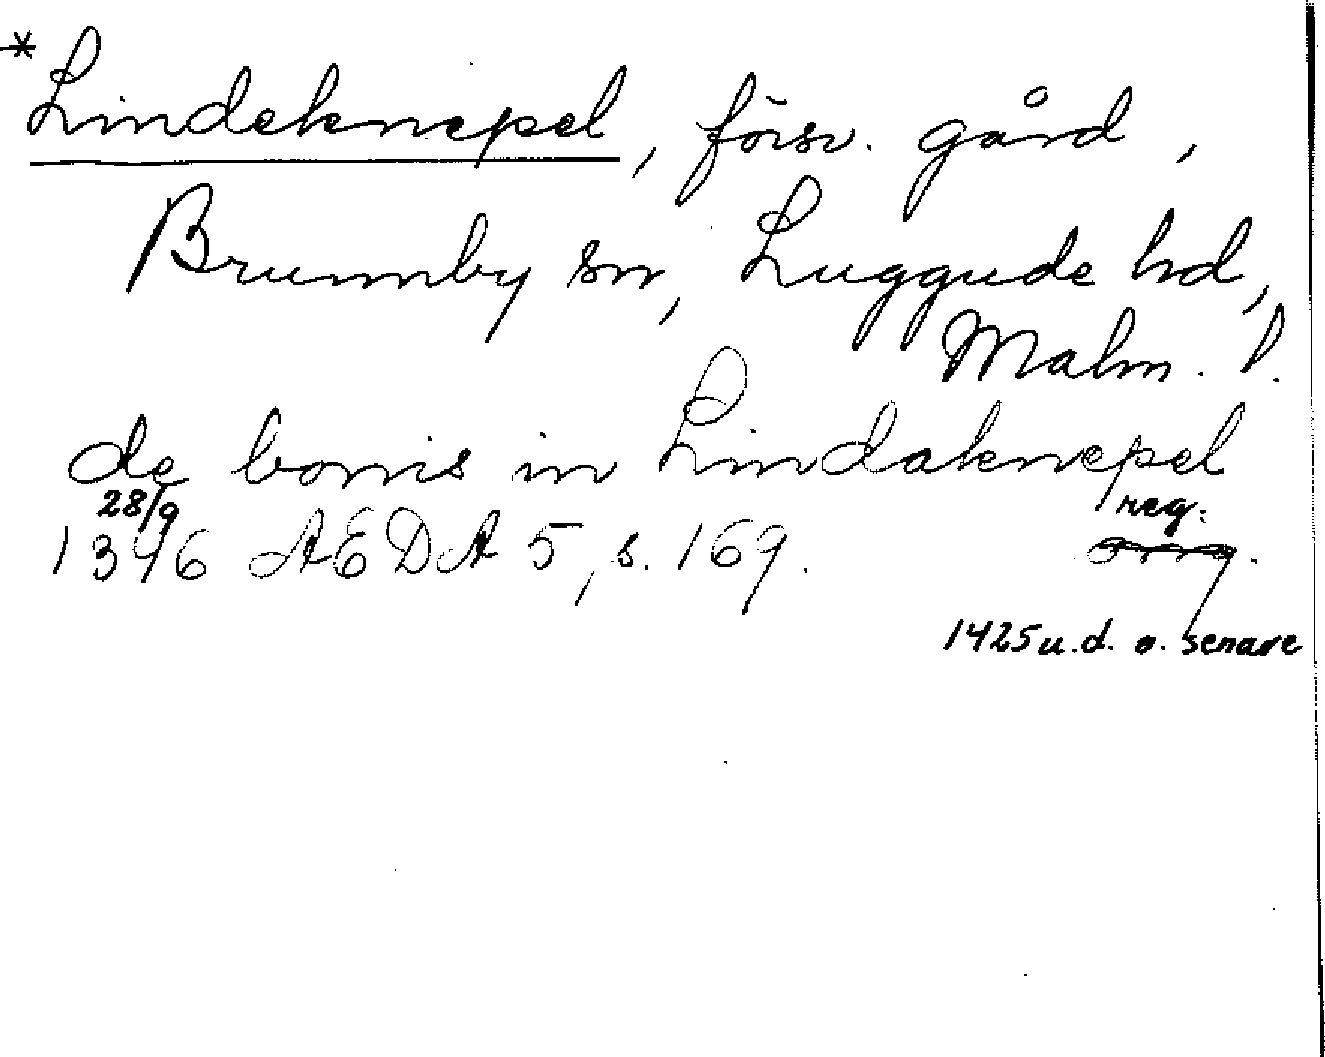 *Lindeknepel, försv. gård,
Brunnby sn, Luggude hd,
Malm. l.
de bonis in Lindaknepel
28/9 reg:
1346 AEDA 5, s. 169. orig.
1425 u.d. o. senare